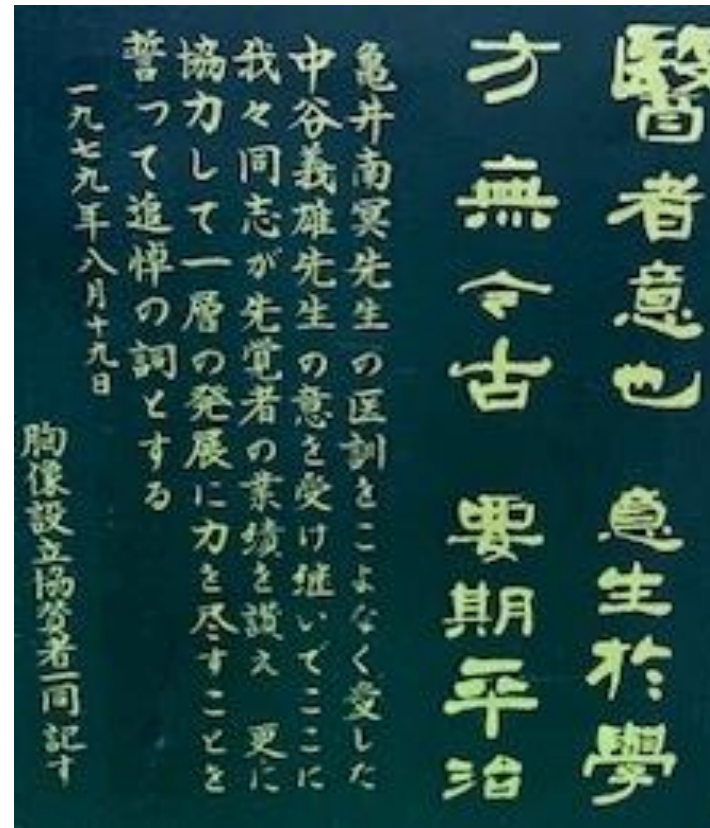 醫者意也 意生於學
方無今古 要期平治
亀井南冥先生の医訓をこよなく愛した
中谷義雄先生の意を受け継いでここに
我々同志が先覚者の業績を讃え 更に
協力して一層の発展に力を尽すことを
誓って追悼の詞とする
一九七九年八月十九日
胸像設立協賛者一同記す